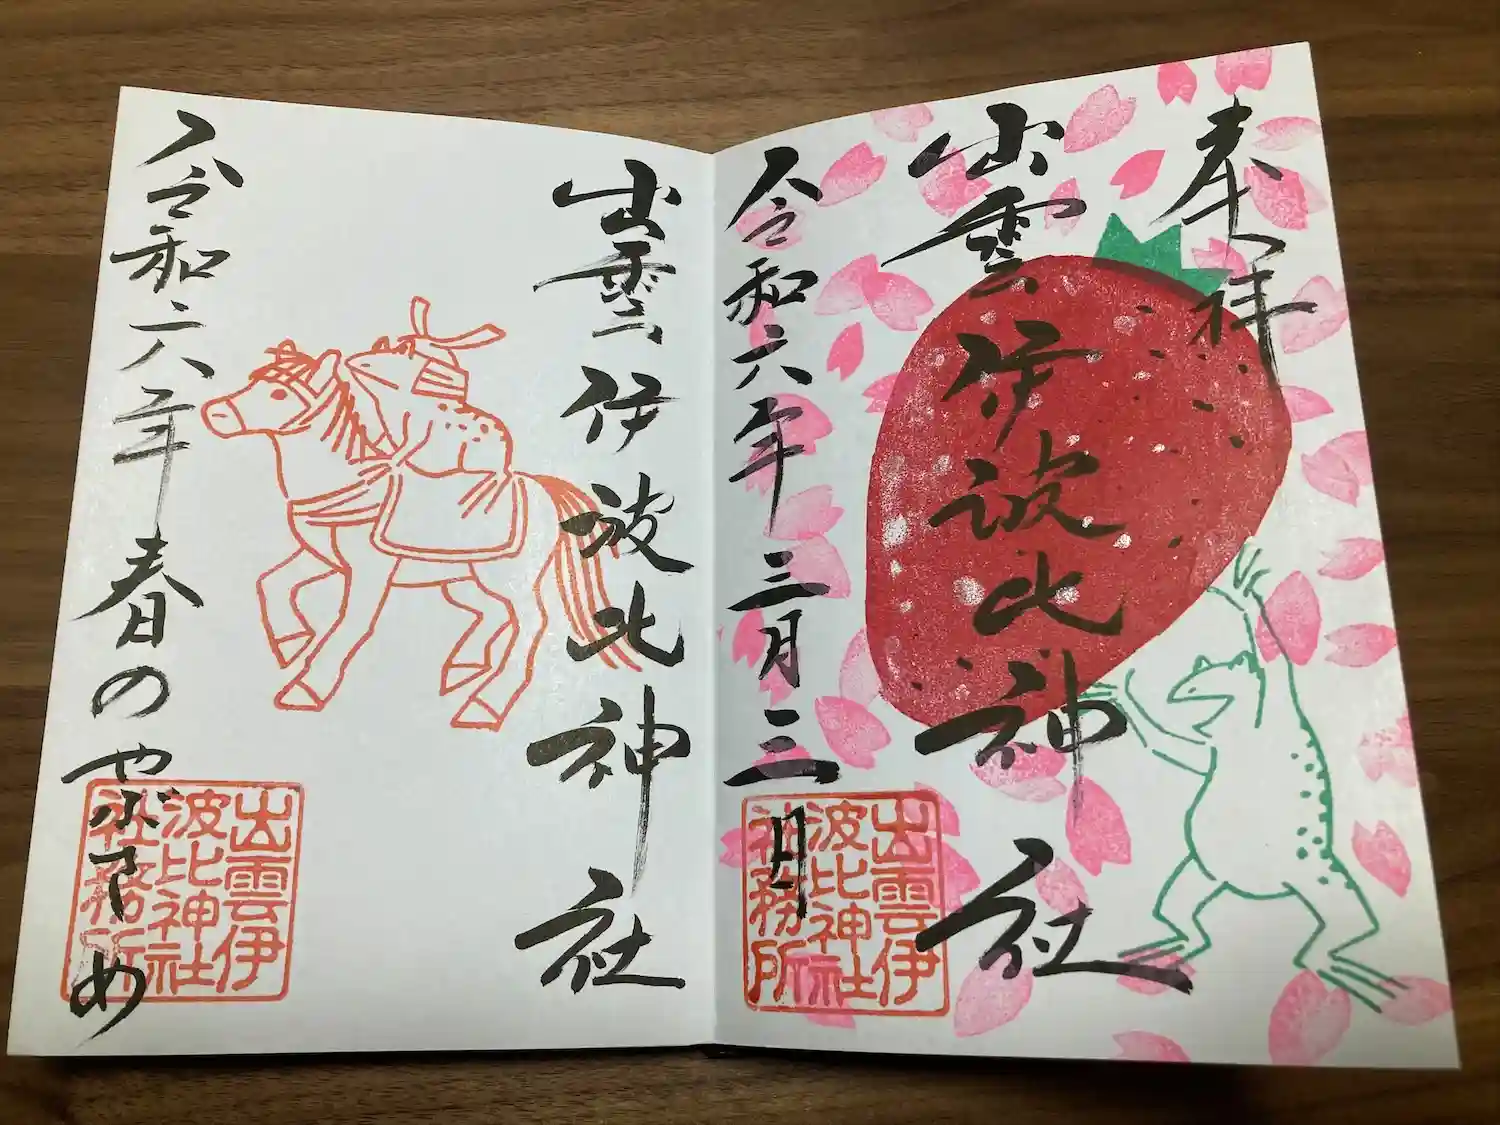 奉拝
出雲伊波比神社
令和六年三月三日
出雲伊
波比神社
社務所
出雲伊波比神社
令和六年春のやぶさめ
出雲伊
波比神社
社務所